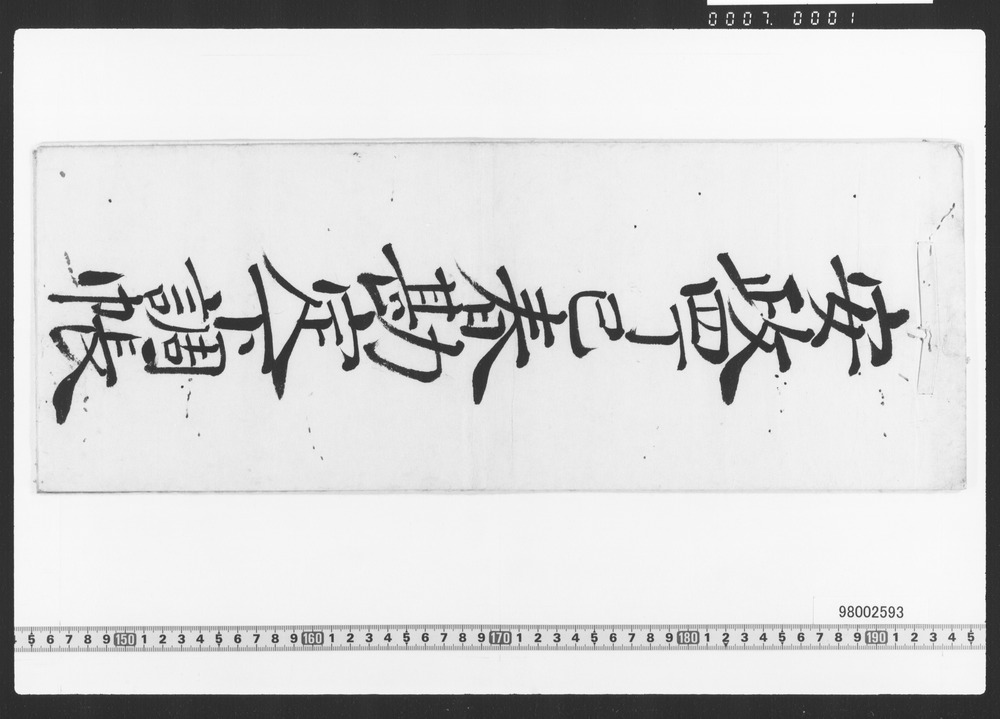 安政四丁巳春勘定下調帳
0007. 0001
98002593
5 6 7 8 9 150 1 2 3 4 5 6 7 8 9 160 1 2 3 4 5 6 7 8 9 170 1 2 3 4 5 6 7 8 9 180 1 2 3 4 5 6 7 8 9 190 1 2 3 4 5